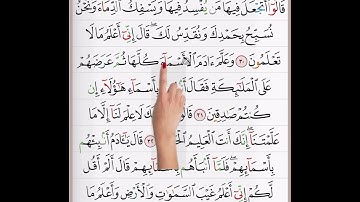 قَالُوٓا۟ أَتَجْعَلُ فِيهَا مَن يُفْسِدُ فِيهَا وَيَسْفِكُ ٱلدِّمَآءَ وَنَحْنُ
نُسَبِّحُ بِحَمْدِكَ وَنُقَدِّسُ لَكَ ۖ قَالَ إِنِّىٓ أَعْلَمُ مَا لَا
تَعْلَمُونَ ٣٠ وَعَلَّمَ ءَادَمَ ٱلْأَسْمَآءَ كُلَّهَا ثُمَّ عَرَضَهُمْ
عَلَى ٱلْمَلَٰٓئِكَةِ فَقَالَ أَنۢبِـُٔونِى بِأَسْمَآءِ هَٰٓؤُلَآءِ إِن
كُنتُمْ صَٰدِقِينَ ٣١ قَالُوا۟ لَا عِلْمَ لَنَآ إِلَّا مَا
عَلَّمْتَنَآ ۖ إِنَّكَ أَنتَ ٱلْعَلِيمُ ٱلْحَكِيمُ ٣٢ قَالَ يَٰٓـَٔادَمُ أَنۢبِئْهُم
بِأَسْمَآئِهِمْ ۖ فَلَمَّآ أَنۢبَأَهُم بِأَسْمَآئِهِمْ قَالَ أَلَمْ أَقُل
لَّكُمْ إِنِّىٓ أَعْلَمُ غَيْبَ ٱلسَّمَٰوَٰتِ وَٱلْأَرْضِ وَأَعْلَمُ مَا